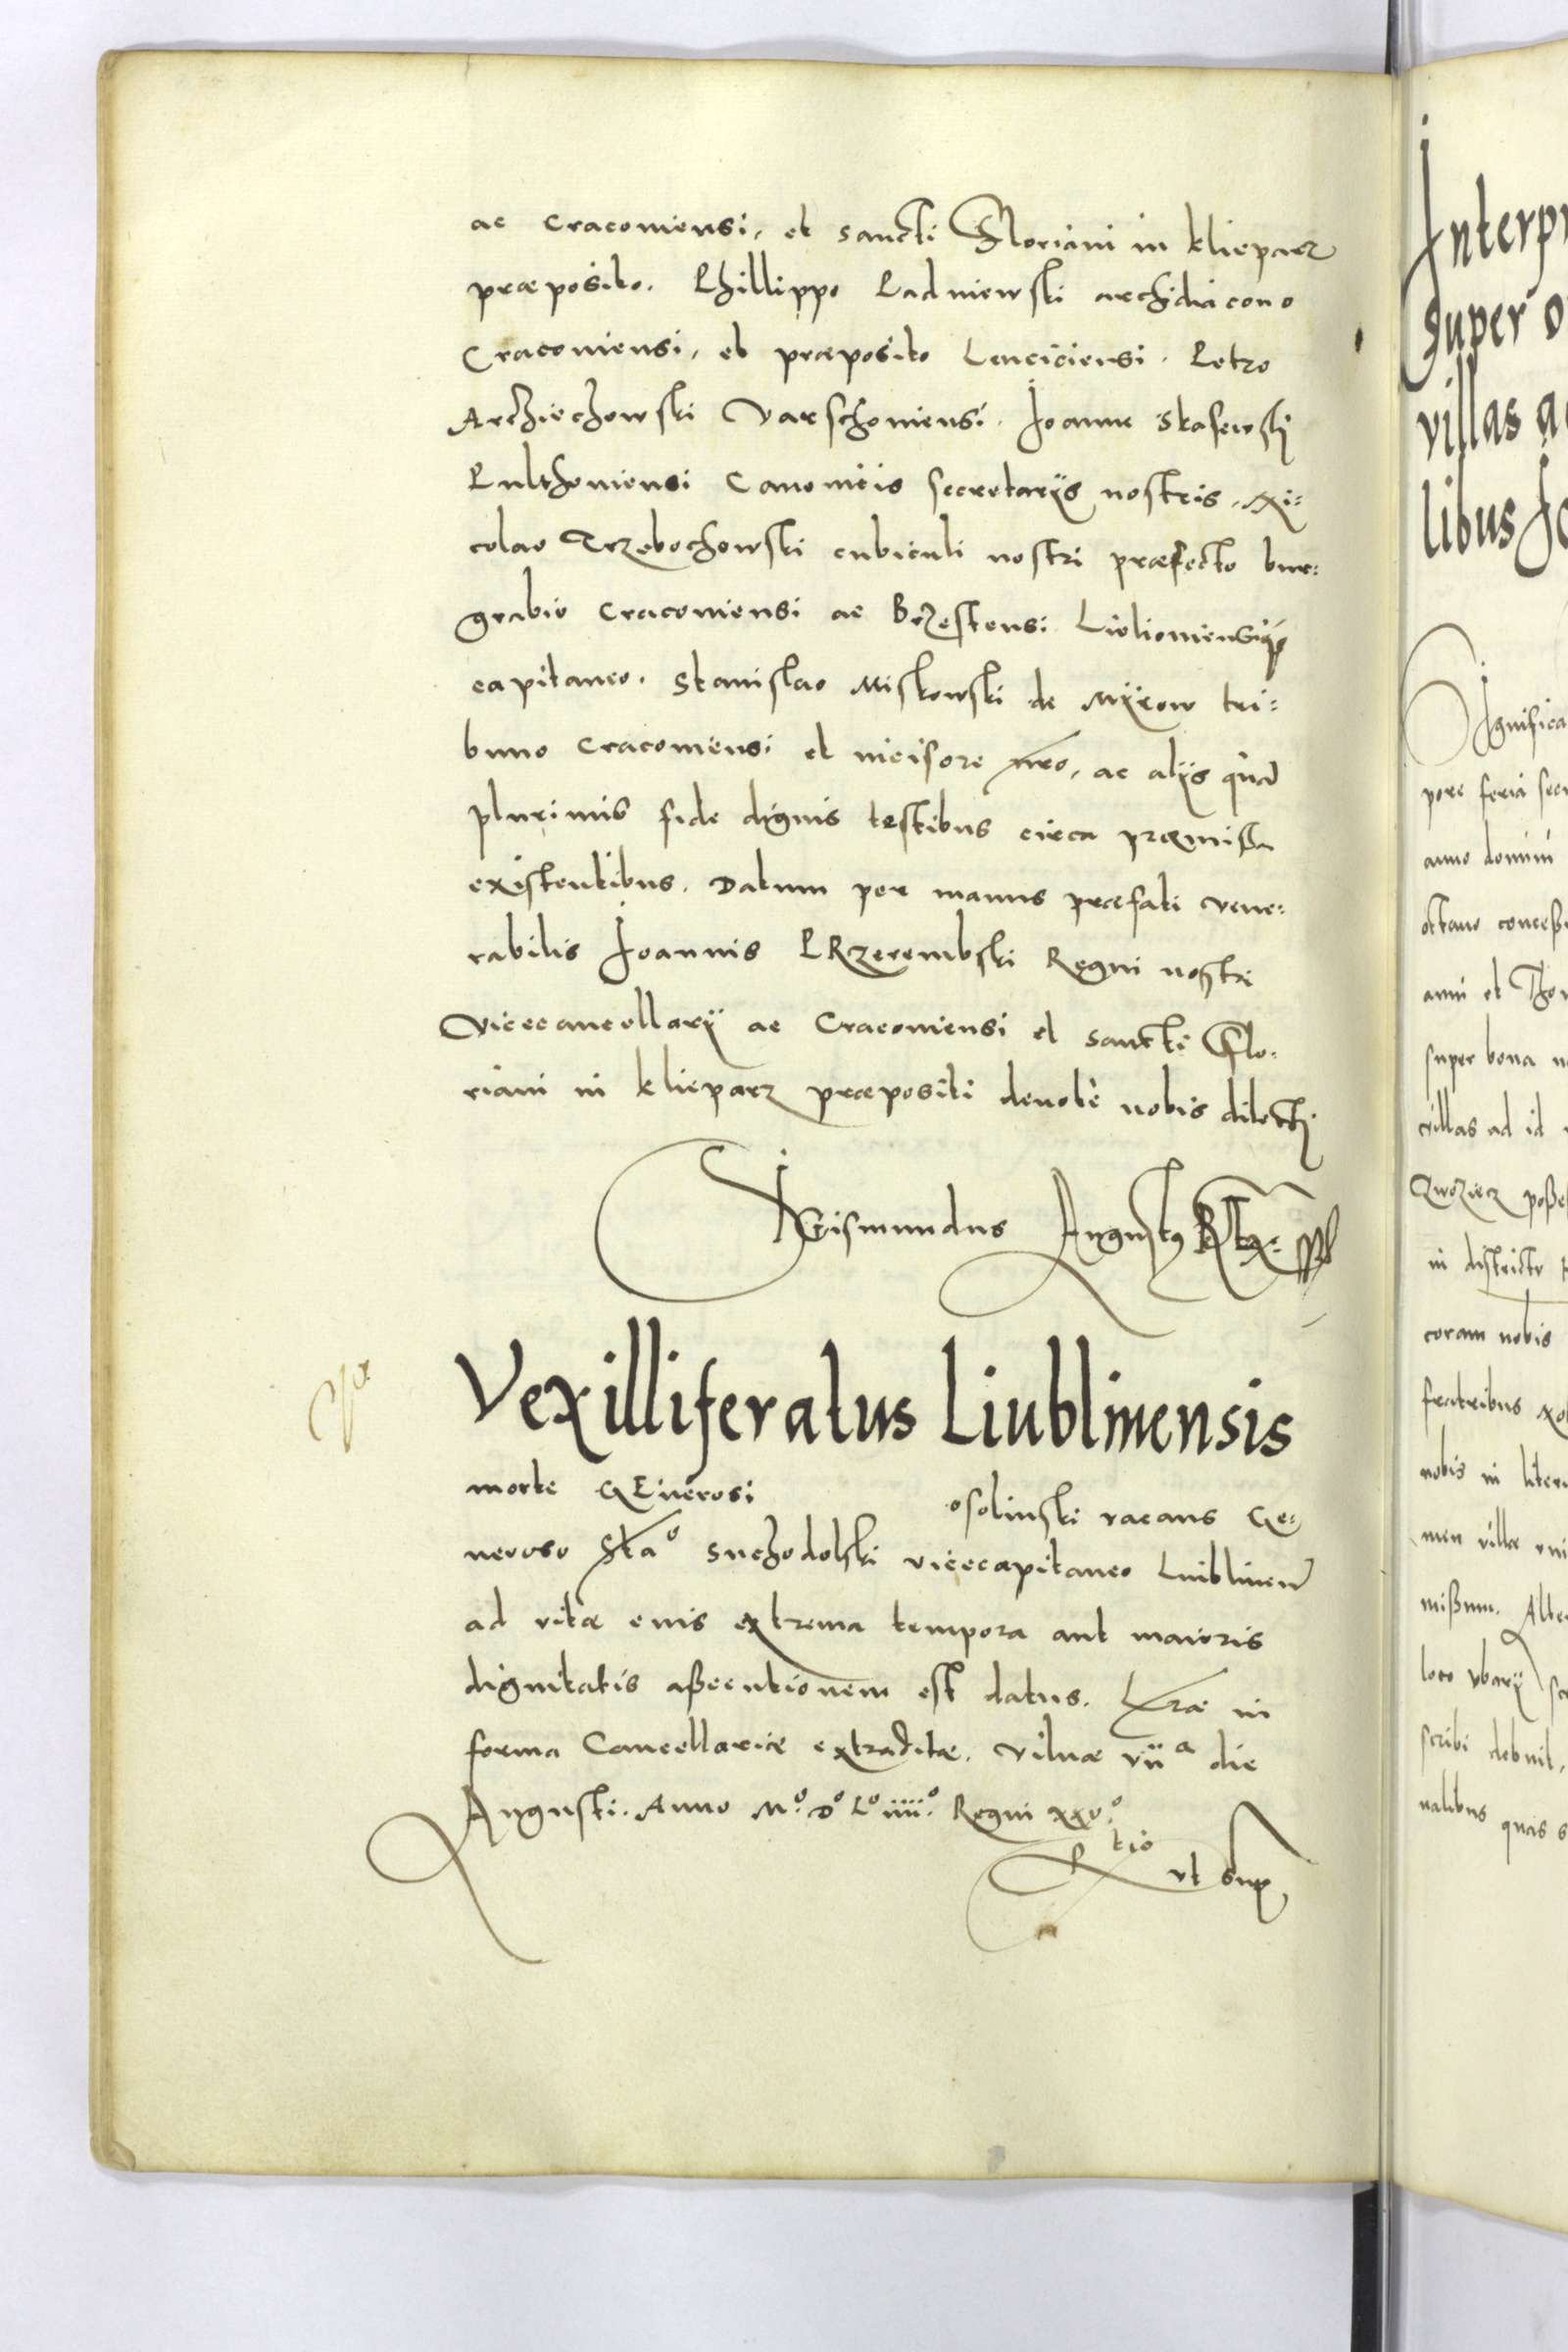 ac Cracoviensi, et sancti Floriani in klieparz
præposito. Phillippo Padniewski archidiacono
Cracoviensi, et præposito Lenciciensi. Petro
Arcziechowski Varschoviensi. Joanne Stasewskj
Pulthoviensi Canonicis secretarijs nostris, Ni=
colao Trzebochowski cubiculi nostri præfecto bur=
grabio Cracoviensi ac Brzestensi
capitaneo. Stanislao Miskowski de Mÿrow tri=
buno Cracoviensi et incisore nro, ac alijs quā
plurimis fide dignis testibus circa præmissa
existentibus. Datum per manus præfati vene=
rabilis Joannis PRzerembski Regni nostri
Vicecancellarij ac Cracoviensi et sancti Flo=
riani in kliepar​z præpositi devotè nobis dilectj
Sigismundus Augustus Rex
Vexilliferatus Liublinensis
morte GEnerosi osolinski vacans Ge=
neroso Stao Suchodolski vicecapitaneo Lublinen
ad vitæ eius extrema tempora aut maioris
dignitatis assecutionem est datus. Lræ in
forma Cancellariæ extraditæ. Vilnæ vii a die
Augusti. Anno Mo. Do Lo iiii.o Regni xxv.o
Rtio ut sup
Interpr
super o
villas a
libus Jo
Significa
pore feria sec
anno domini
octavo concess
anni et Tho
super bona
villas ad id
posse
in districtu
coram nobis
fratribus
nobis in liter
men villæ
missum. Alte
loco
scribi debuit,
nalibus quas s